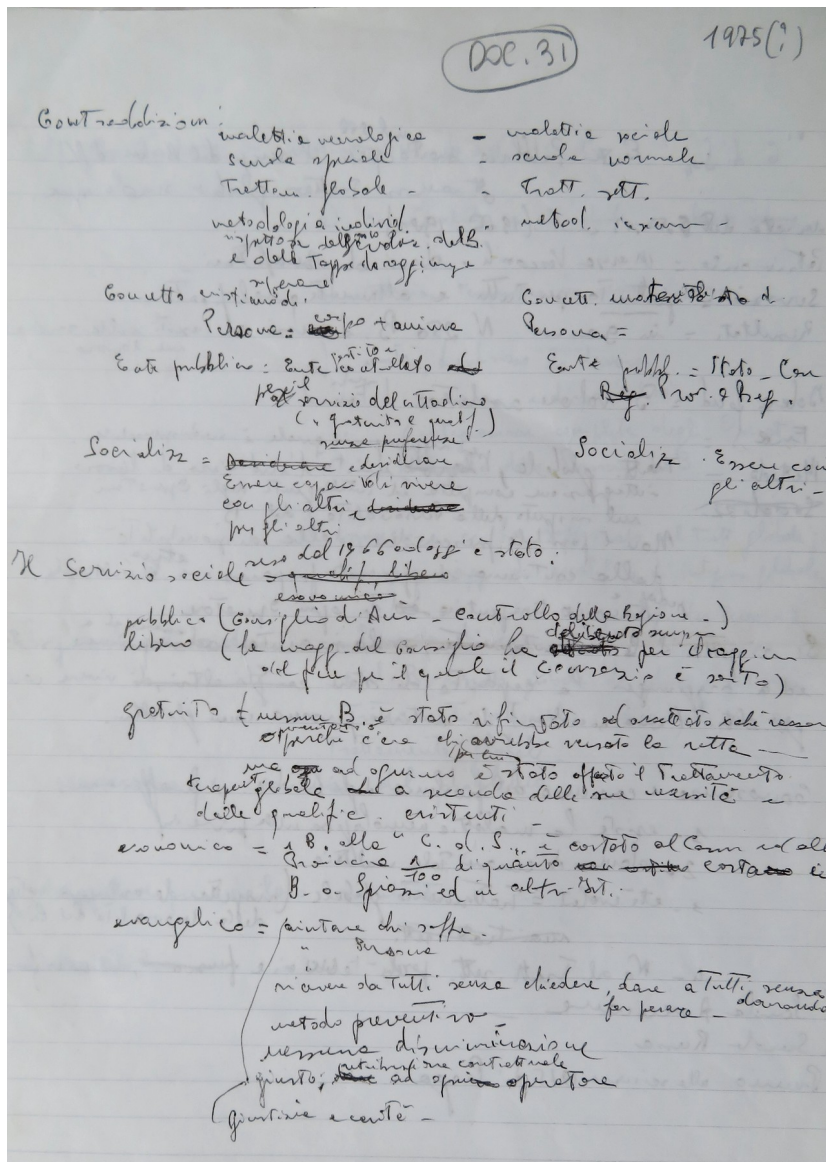 DOC. 31
1975(?)
Contraddizioni:
malattia neurologica - malattia sociale
Scuola speciale - scuola normale
Trattam. globale - - Tratt. sett.
metodologia individ. - metod.
rispettosa dell' evoluz. del B.
e delle Tappe da raggiungere
superare
Concetto cristiano di
Persona = corpo + anima
Concett. materialista d.
Persona =
Ente pubblico = Ente controllato
per il servizio del cittadino
( gratuito e qualif.)
senza preferenze
Ente pubbl. = Stato - Com
Reg. Prov. e Reg.
Socializz = Desiderare desiderare
Essere capaci di vivere
con gli altri e
per gli altri
Socializ. Essere con
gli altri -
Il Servizio sociale reso dal 1966 ad oggi è stato:
pubblico (Consiglio d'Amm - controllo della Regione -)
libero (la magg. del Consiglio ha deliberato sempre per il ragg.
del fine per il quale il Consorzio è sorto)
gratuito ( nessun B. è stato rifiutato od accettato xchè
o perchè c'era chi avrebbe versato la retta
ma ad ognuno è stato offerto il Trattamento
globale a seconda delle sue necessità e
delle qualific. esistenti -
economico = 1 B. alla "C. d. S." è costato al Com ed alla
Provincia 1/100 di quanto costa
B. a Spiazzi ed in altri Ist.
evangelico = aiutare chi soffre.
" Persona
ricevere da Tutti senza chiedere, dare a Tutti senza
far pesare - domanda
metodo preventivo
nessuna discriminazione
giusta retribuzione contrattuale
ad ogni operatore
Giustizia e carità -